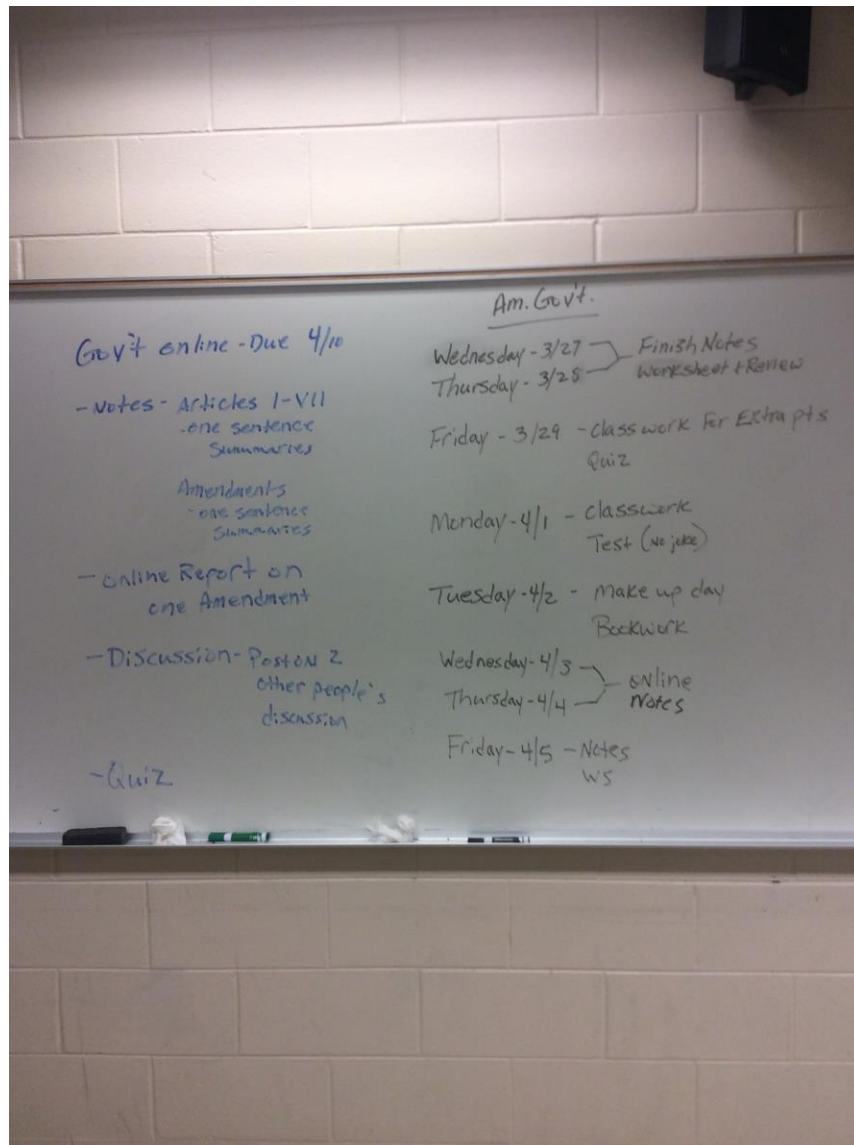 Gov't online - Due 4/10
- Notes - Articles I-VII
- one sentence
Summaries
Amendments
- one sentence
Summaries
- online Report on
one Amendment
- Discussion - Post on 2
other people's
discussion
- Quiz
Am. Gov't.
Wednesday - 3/27
Thursday - 3/28
Finish Notes
Worksheet + Review
Friday - 3/29 - Classwork For Extra pts
Quiz
Monday - 4/1 - Classwork
Test (No joke)
Tuesday - 4/2 - Make up day
Bookwork
Wednesday - 4/3
Thursday - 4/4
online
Notes
Friday - 4/5 - Notes
WS